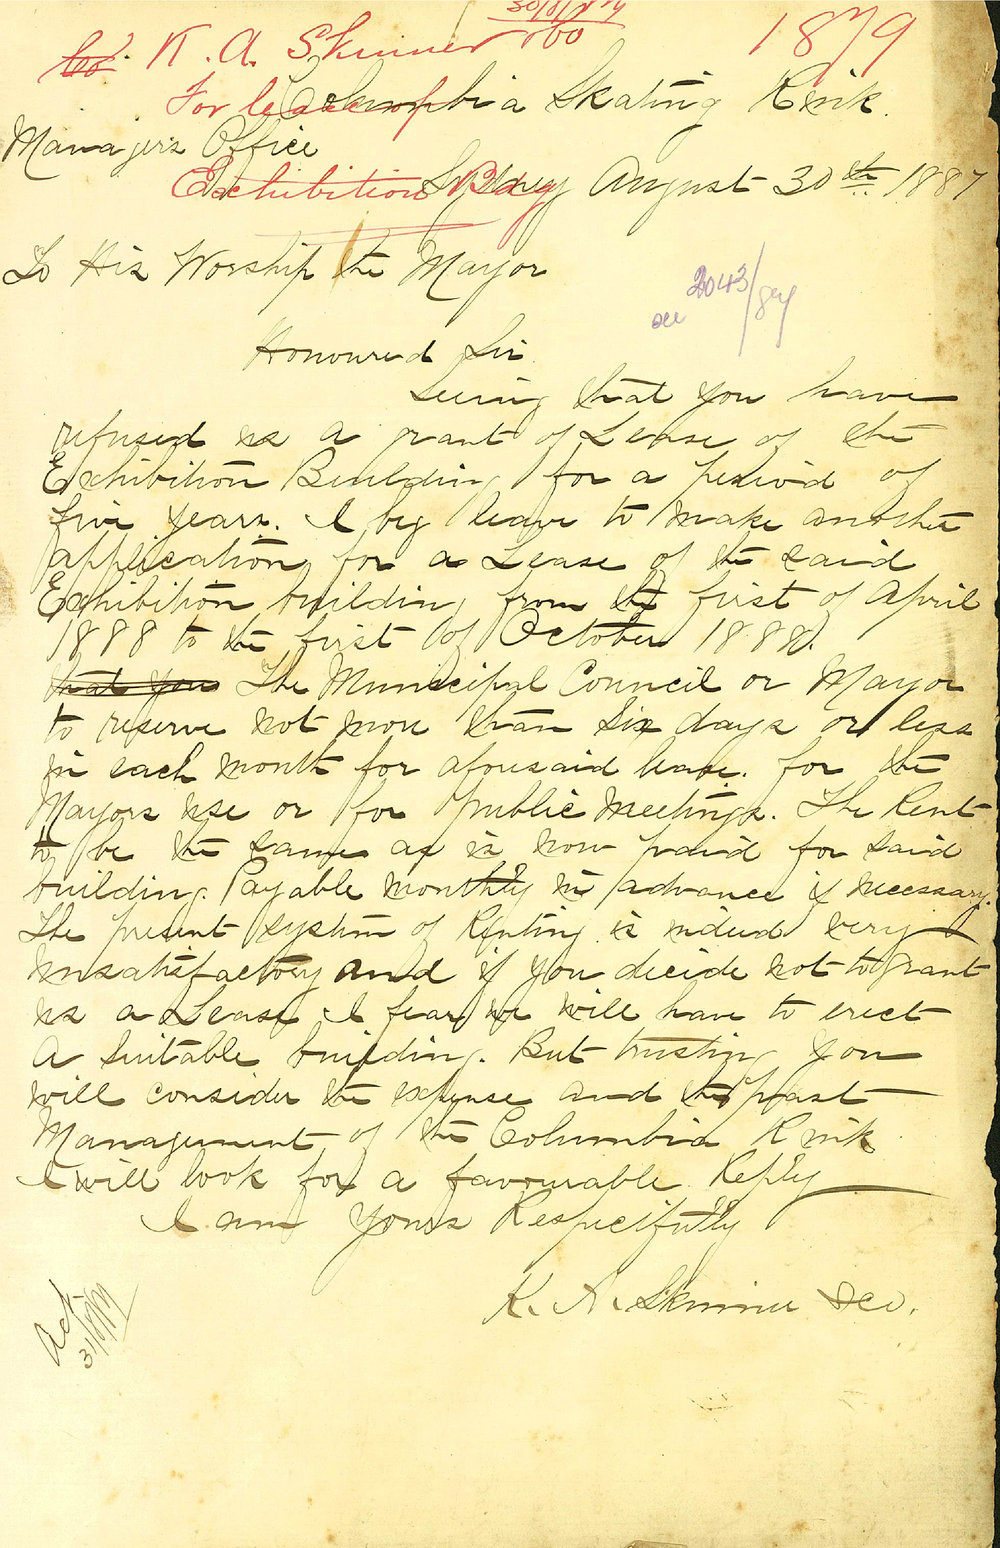 30/8/87
K. A. Skinner 1879
For lease of
Columbia Skating Rink.
Managers Office
Exhibition Bdg
Sydney August 30th. 1887
To His Worship the Mayor
2043/87
Honoured Sir
Seeing that you have
refused us a grant of Lease of the
Exhibition Building for a period of
five years. I beg leave to make another
application for a Lease of the said
Exhibition building from the first of April
1888 to the first of October 1888.
that you The Municipal Council or Mayor
to reserve not more than six days or less
in each month for aforesaid lease. for the
Mayors use or for public meetings. The Rent
to be the same as is now paid for said
building. Payable monthly in advance if necessary.
The present system of Renting is indeed very
unsatisfactory and if you decide not to grant
us a Lease I fear we will have to erect
a suitable building. But trusting you
will consider the expense and the past
Management of the Columbia Rink
I will look for a favourable Reply
I am Yours Respectfully
K. A. Skinner
31/8/87